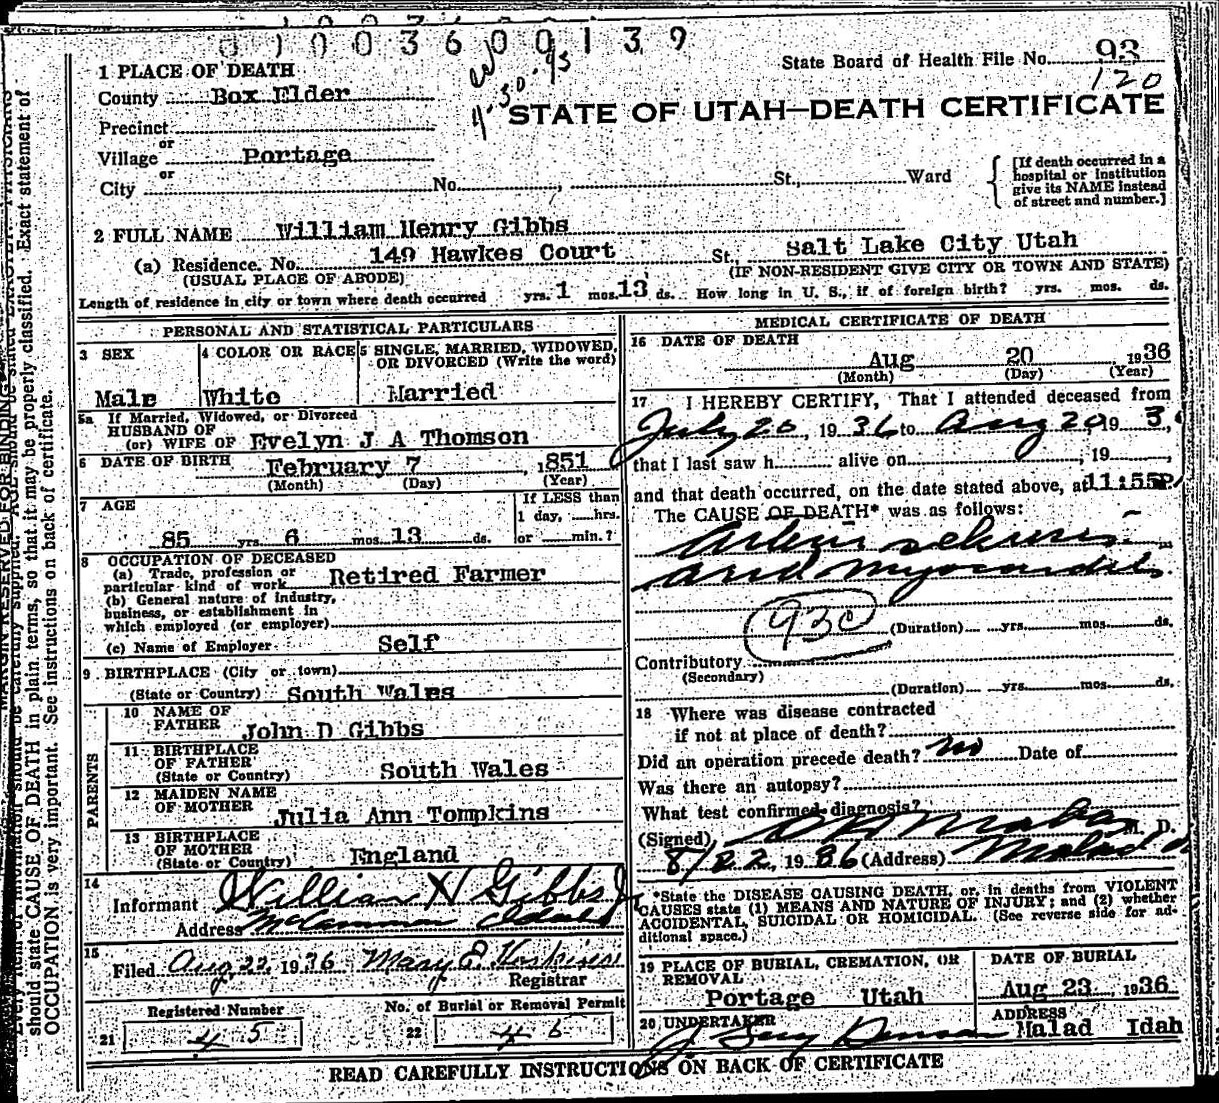 0100360 0139
State Board of Health File No. 93
120
1 PLACE OF DEATH
County Box Elder
STATE OF UTAH—DEATH CERTIFICATE
Precinct
or
Village Portage
or
City No. , St., Ward
[If death occurred in a
hospital or institution
give its NAME instead
of street and number.]
2 FULL NAME William Henry Gibbs
(a) Residence. No. 149 Hawkes Court St., Salt Lake City Utah
(USUAL PLACE OF ABODE) (IF NON-RESIDENT GIVE CITY OR TOWN AND STATE)
Length of residence in city or town where death occurred yrs. 1 mos. 13 ds. How long in U. S., if of foreign birth? yrs. mos. ds.
PERSONAL AND STATISTICAL PARTICULARS
3 SEX 4 COLOR OR RACE 5 SINGLE, MARRIED, WIDOWED,
OR DIVORCED (Write the word)
Male White Married
5a If Married, Widowed, or Divorced
HUSBAND OF
(or) WIFE OF Evelyn J A Thomson
6 DATE OF BIRTH February 7, 1851
(Month) (Day) (Year)
7 AGE If LESS than
1 day, hrs.
85 yrs. 6 mos. 13 ds. or min.?
8 OCCUPATION OF DECEASED
(a) Trade, profession or
particular kind of work Retired Farmer
(b) General nature of industry,
business, or establishment in
which employed (or employer)
(c) Name of Employer Self
9 BIRTHPLACE (City or town)
(State or Country) South Wales
PARENTS
10 NAME OF
FATHER John D Gibbs
11 BIRTHPLACE
OF FATHER
(State or Country) South Wales
12 MAIDEN NAME
OF MOTHER
Julia Ann Tompkins
13 BIRTHPLACE
OF MOTHER
(State or Country) England
14
Informant William H Gibbs Jr
Address McCammon Idaho
15
Filed Aug 22, 1936 Mary E
Registrar
Registered Number No. of Burial or Removal Permit
21 45 22 46
MEDICAL CERTIFICATE OF DEATH
16 DATE OF DEATH
Aug 20, 1936
(Month) (Day) (Year)
17 I HEREBY CERTIFY, That I attended deceased from
July 20, 1936 to Aug 20 19 3
that I last saw h alive on , 19 ,
and that death occurred, on the date stated above, at 11:55P
The CAUSE OF DEATH* was as follows:
Arterio sclerosis
and myocarditis
930 (Duration) yrs. mos. ds.
Contributory
(Secondary)
(Duration) yrs. mos. ds.
18 Where was disease contracted
if not at place of death?
Did an operation precede death? no Date of
Was there an autopsy?
What test confirmed diagnosis?
(Signed) M. D.
8/22, 1936 (Address) Malad
*State the DISEASE CAUSING DEATH, or, in deaths from VIOLENT
CAUSES state (1) MEANS AND NATURE OF INJURY; and (2) whether
ACCIDENTAL, SUICIDAL OR HOMICIDAL. (See reverse side for ad-
ditional space.)
19 PLACE OF BURIAL, CREMATION, OR
REMOVAL
Portage Utah
DATE OF BURIAL
Aug 23, 1936
20 UNDERTAKER
ADDRESS
Malad Idah
READ CAREFULLY INSTRUCTIONS ON BACK OF CERTIFICATE
should state CAUSE OF DEATH in plain terms, so that it may be properly classified. Exact statement of
OCCUPATION is very important. See instructions on back of certificate.